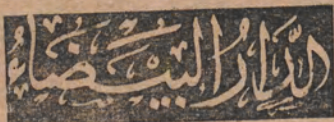 الدَّارُ البَيْضَاءُ